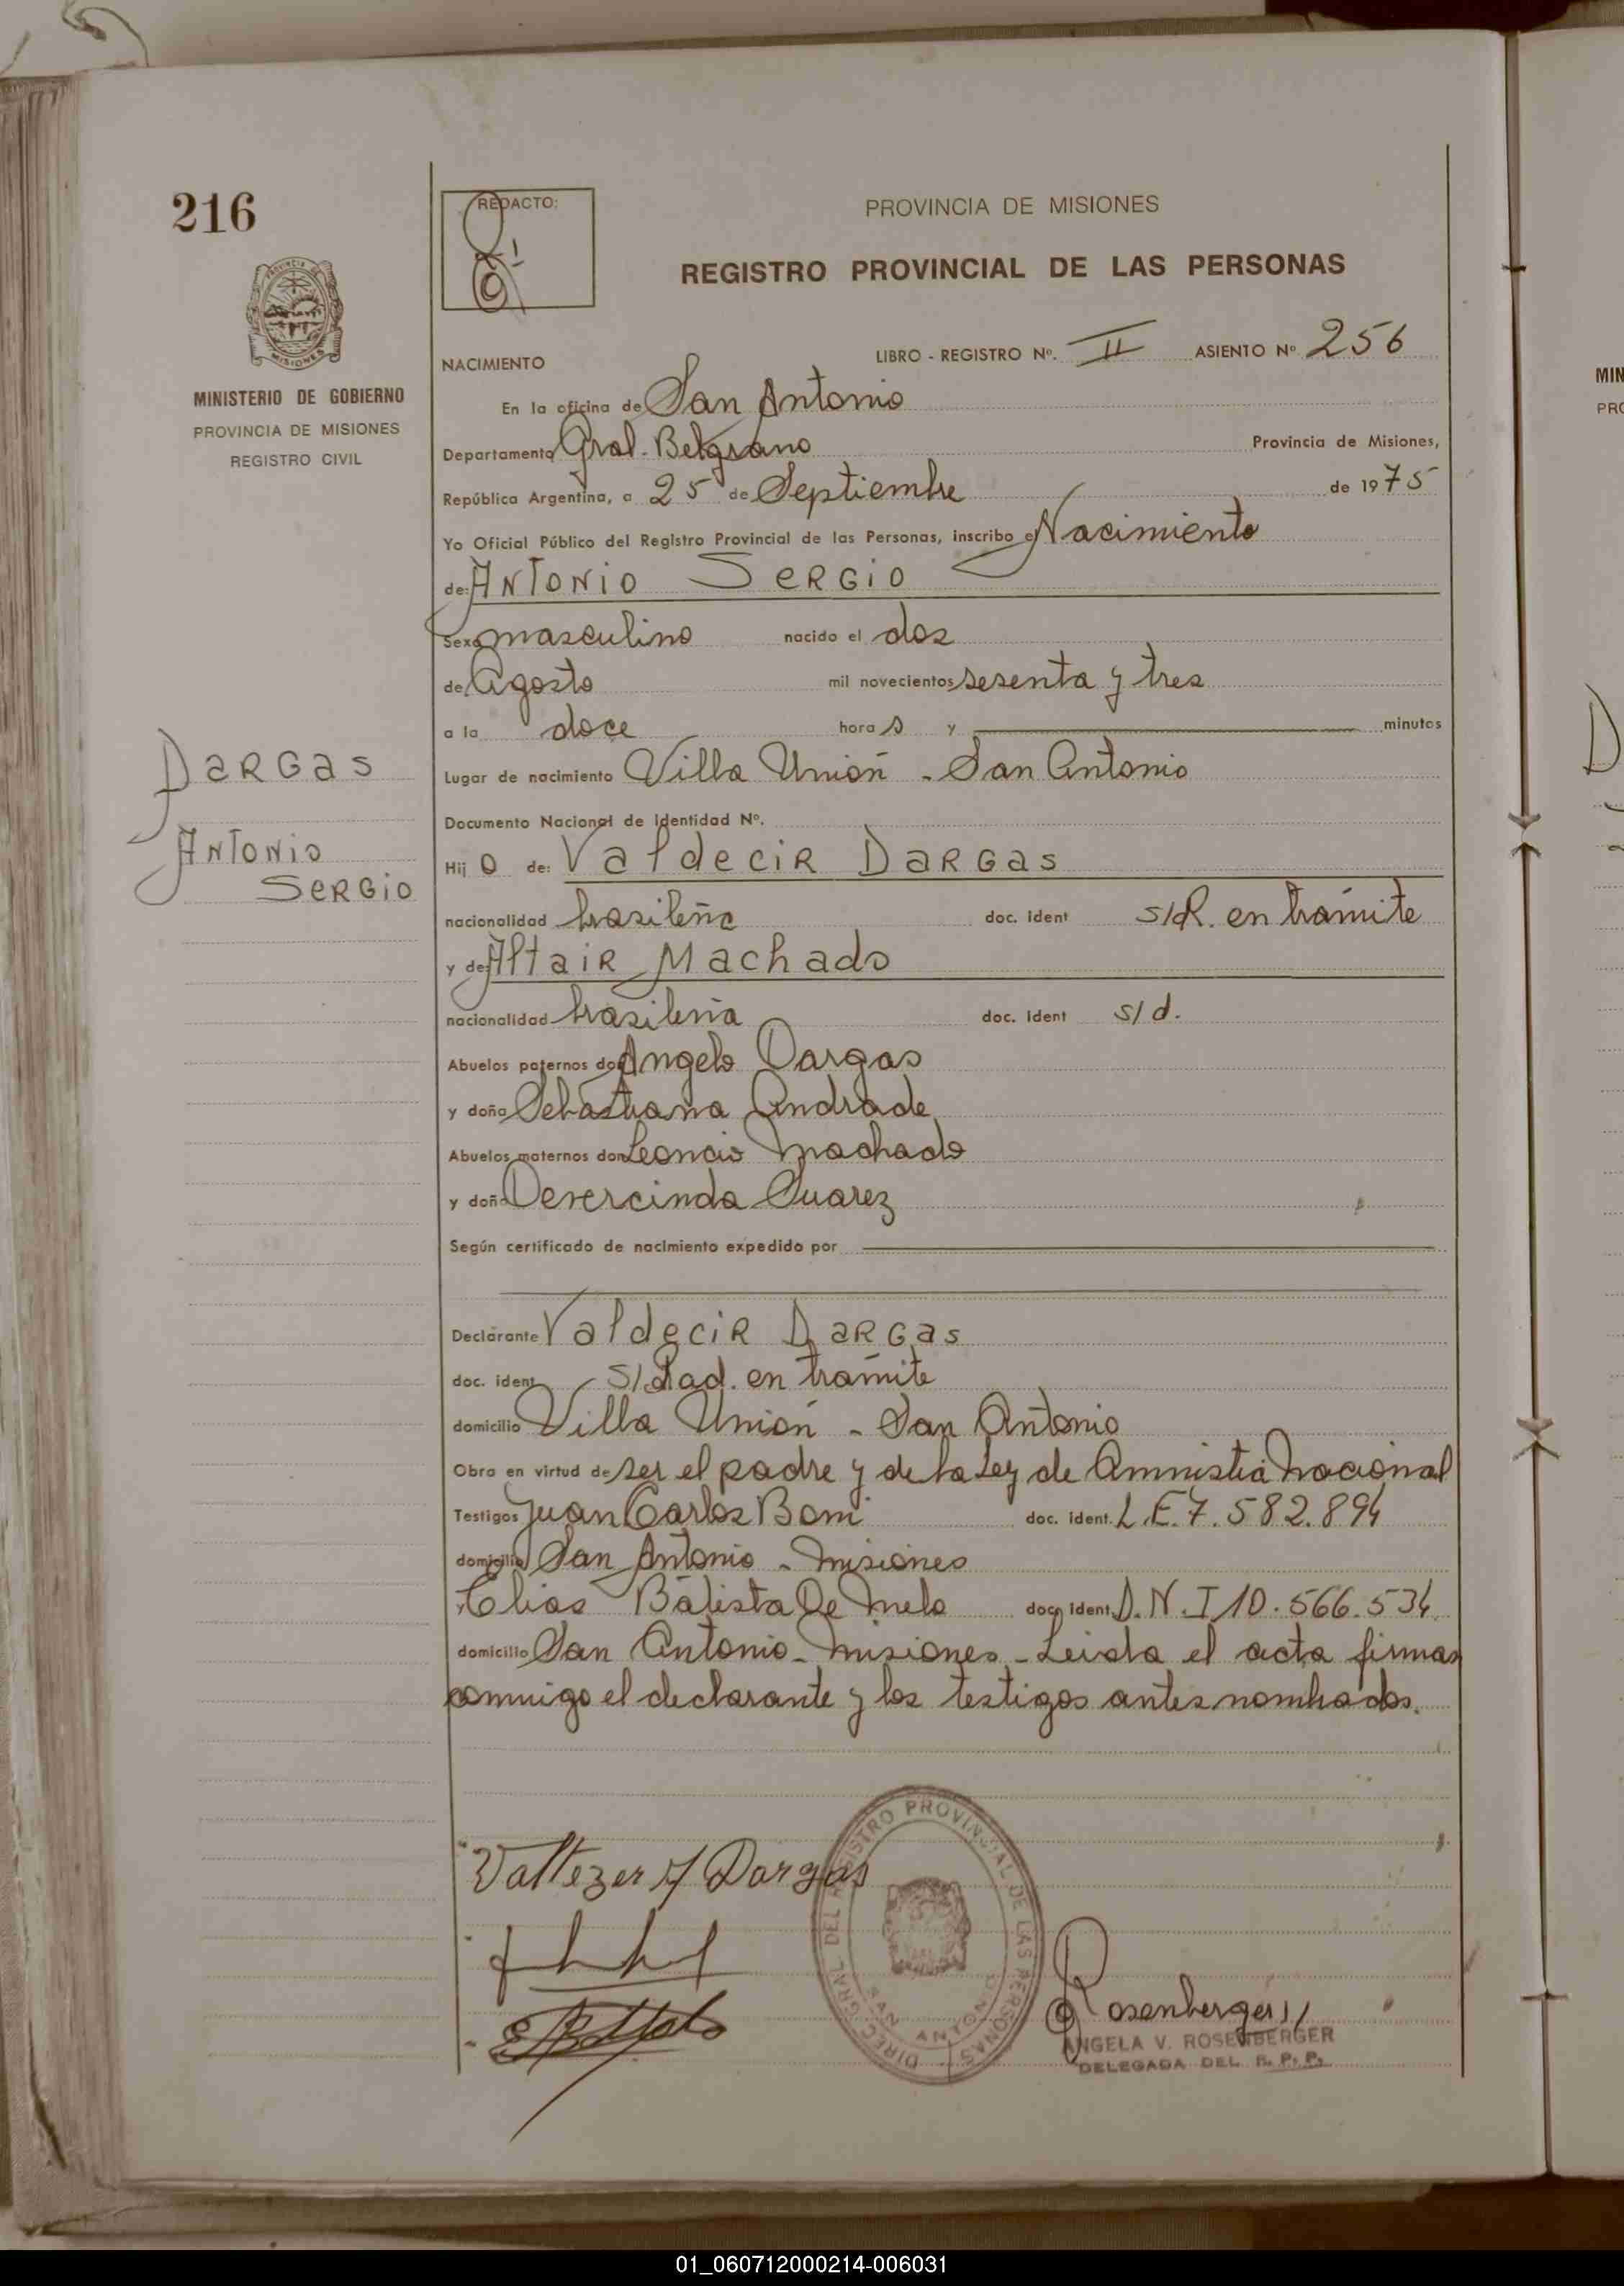 216
REDACTO:
PROVINCIA DE MISIONES
REGISTRO PROVINCIAL DE LAS PERSONAS
LIBRO - REGISTRO Nº. II ASIENTO Nº 256
NACIMIENTO
MINISTERIO DE GOBIERNO
PROVINCIA DE MISIONES
REGISTRO CIVIL
En la oficina de San Antonio
Departamento Gral. Belgrano Provincia de Misiones,
República Argentina, a 25 de Septiembre de 1975
Yo Oficial Público del Registro Provincial de las Personas, inscribo el Nacimiento
de: ANTONIO SERGIO
Sexo masculino nacido el dos
de Agosto mil novecientos sesenta y tres
a la doce horas y minutos
Lugar de nacimiento Villa Unión - San Antonio
Documento Nacional de Identidad Nº.
DARGAS
ANTONIO
SERGIO
Hijo de: Valdecir DARGAS
nacionalidad brasileña doc. ident s/R. en trámite
y de: Altair Machado
nacionalidad brasileña doc. ident s/d.
Abuelos paternos don Angelo Dargas
y doña Sebastiana Andrade
Abuelos maternos don Leoncio Machado
y doña Devercinda Suarez
Según certificado de nacimiento expedido por
Declarante Valdecir DARGAS
doc. ident s/Rad. en trámite
domicilio Villa Unión - San Antonio
Obra en virtud de ser el padre y de la Ley de Amnistia Nacional
Testigos Juan Carlos Boni doc. ident. L.E. 7.582.894
domicilio San Antonio - Misiones
Elias Batista De Melo doc. ident. D.N.I 10.566.534
domicilio San Antonio - Misiones - Leida el acta firman
conmigo el declarante y los testigos antes nombrados.
Dargas
DIREC. GRAL. DEL REGISTRO PROVINCIAL DE LAS PERSONAS
SAN ANTONIO
Rosenberger
ANGELA V. ROSENBERGER
DELEGADA DEL R. P. P.
MIN
PRO
D
01_060712000214-006031